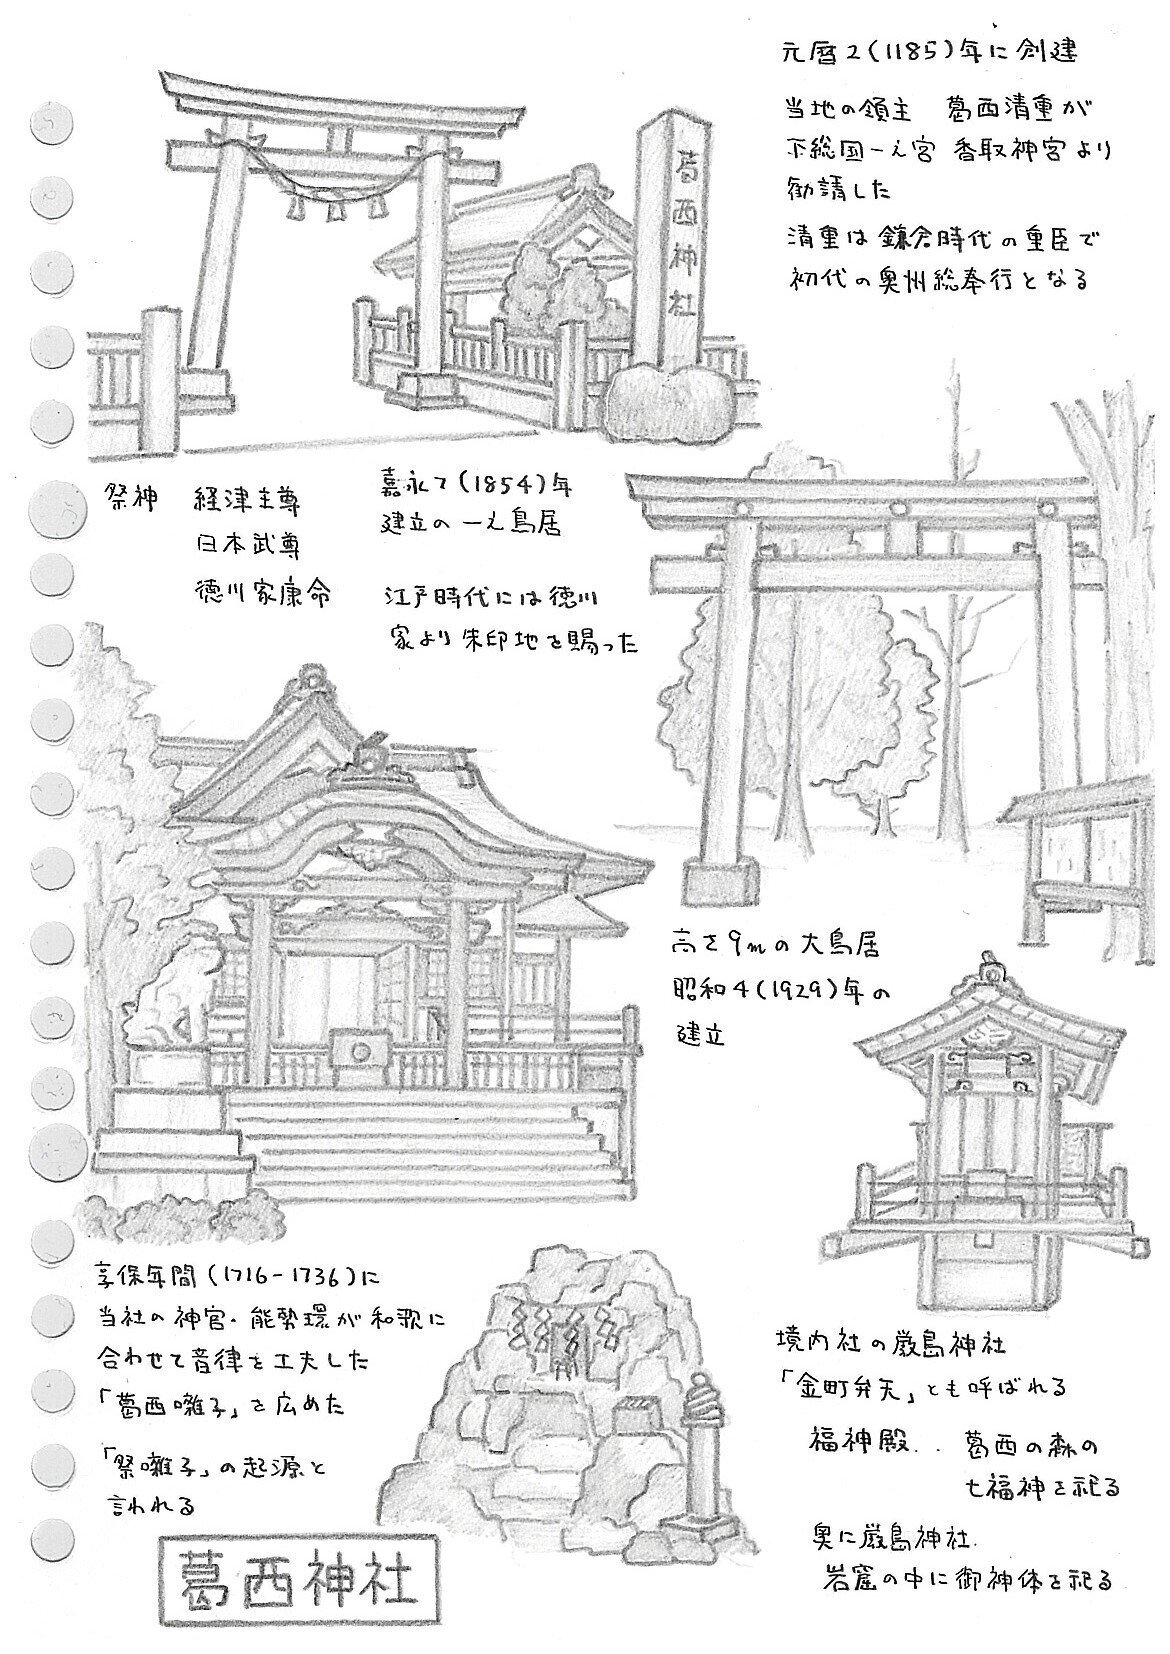 元暦2(1185)年に創建
当地の領主 葛西清重が
下総国一之宮 香取神宮より
勧請した
清重は鎌倉時代の重臣で
初代の奥州総奉行となる
葛西神社
祭神 経津主尊
日本武尊
徳川家康命
嘉永7(1854)年
建立の一之鳥居
江戸時代には徳川
家より朱印地を賜った
高さ9mの大鳥居
昭和4(1929)年の
建立
享保年間(1716-1736)に
当社の神官・能勢環が和歌に
合わせて音律を工夫した
「葛西囃子」を広めた
「祭囃子」の起源と
言われる
境内社の厳島神社
「金町弁天」とも呼ばれる
福神殿.. 葛西の森の
七福神を祀る
奥に厳島神社.
岩窟の中に御神体を祀る
葛西神社